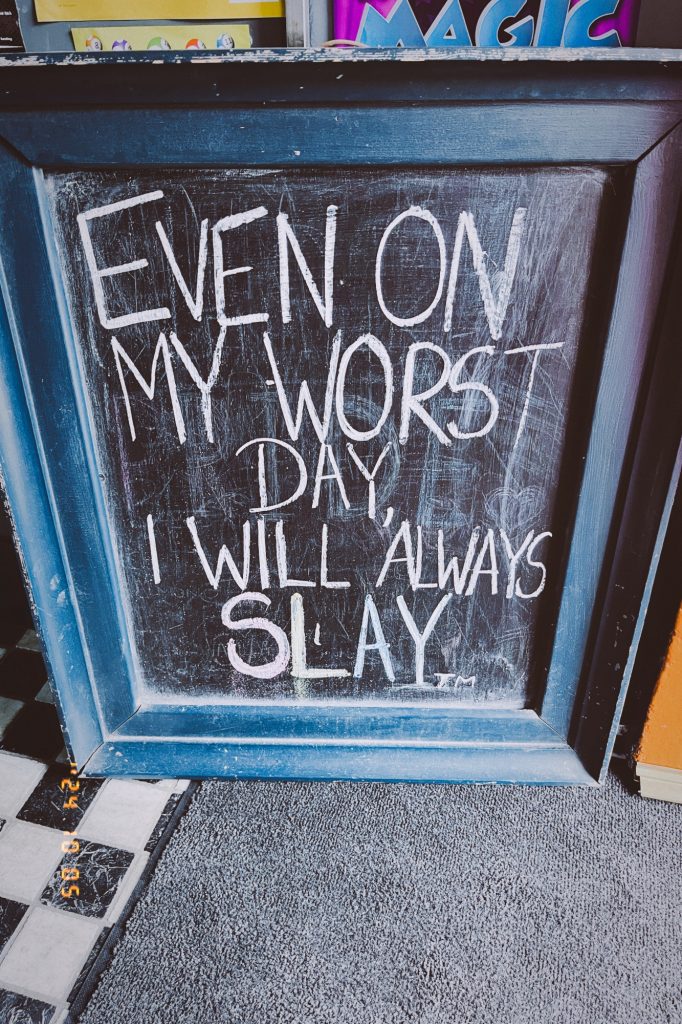 MAGIC
EVEN ON
MY WORST
DAY,
I WILL ALWAYS
SLAY.™
'24 10 05